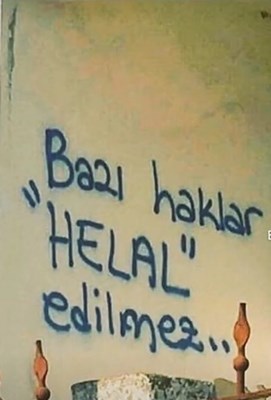 Bazı haklar
"HELAL"
edilmez..